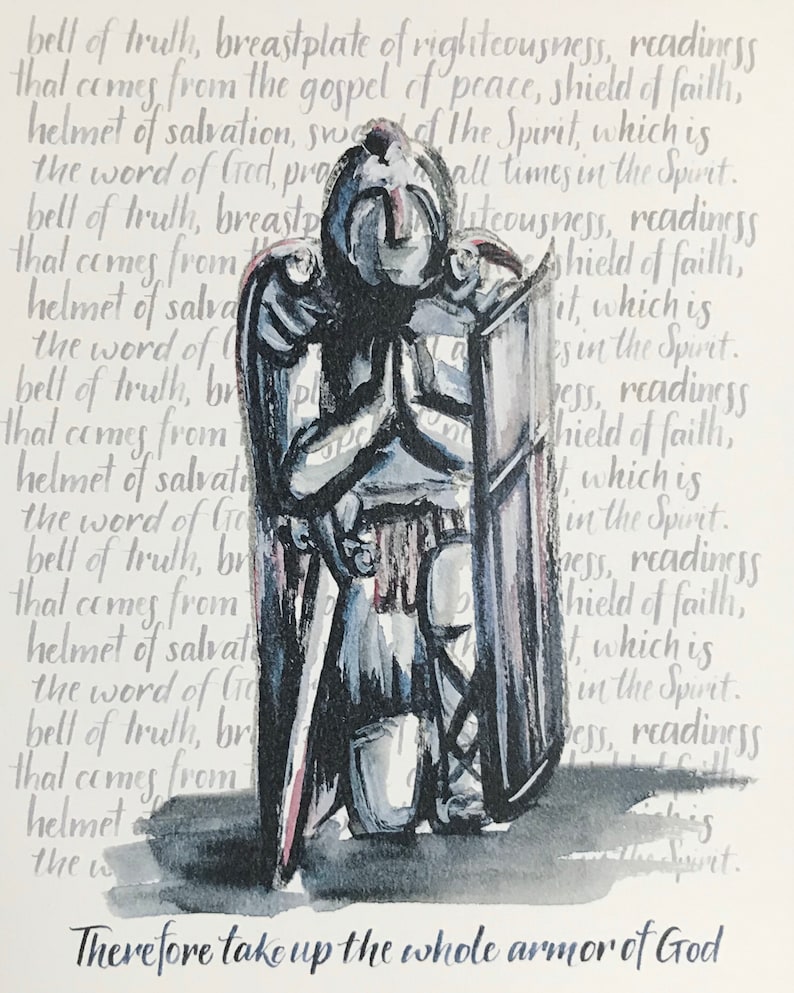 belt of truth, breastplate of righteousness, readiness
that comes from the gospel of peace, shield of faith,
helmet of salvation, sword of the Spirit, which is
the word of God, all times in the Spirit.
belt of truth, breastplate righteousness, readiness
that comes from the shield of faith,
helmet of which is
the word of in the Spirit.
belt of truth, readiness
that comes from shield of faith,
helmet of which is
the word of in the Spirit.
belt of truth, readiness
that comes from shield of faith,
helmet of which is
the word of in the Spirit.
belt of truth, readiness
that comes from
helmet
the Spirit.
Therefore take up the whole armor of God